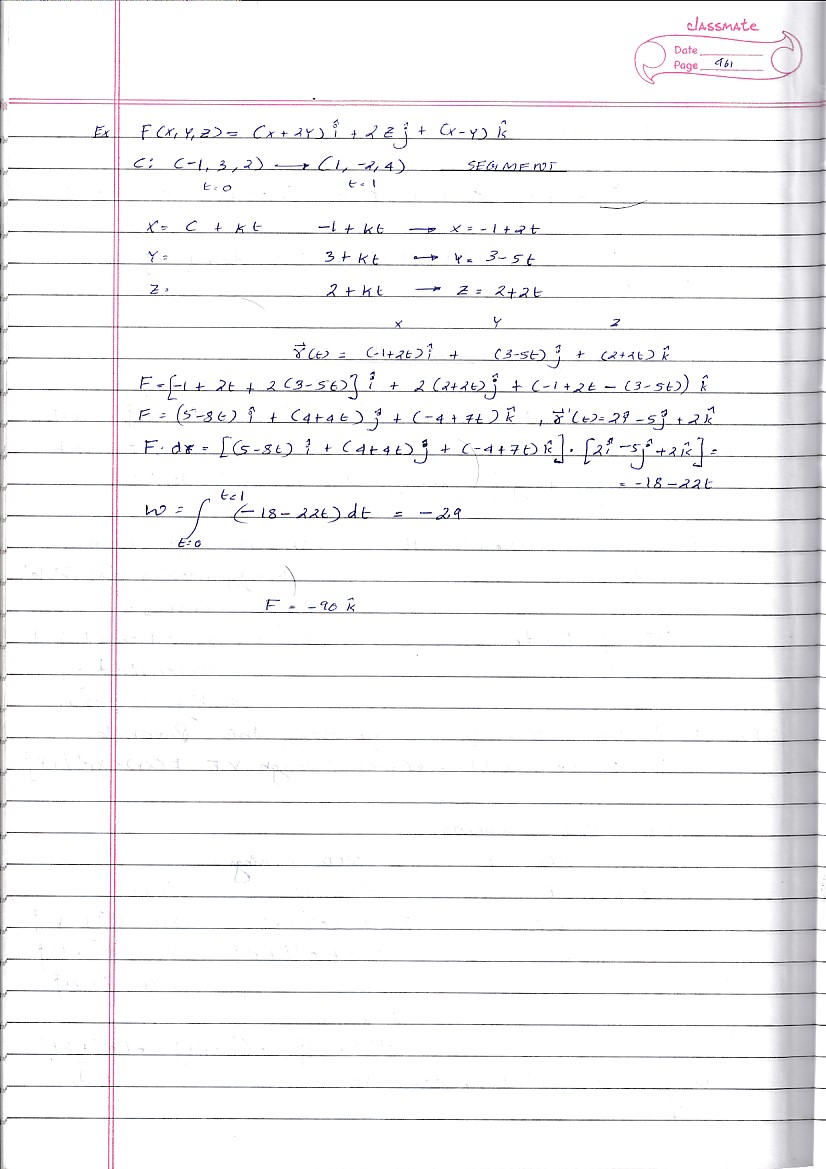 classmate
Date
Page 461
Ex F(x, y, z) = (x + 2y) î + 2z ĵ + (x-y) k̂
C: (-1, 3, 2) → (1, -2, 4) SEGMENT
t=0 t=1
x = c + kt -1 + kt → x = -1+2t
y = 3 + kt → y = 3-5t
z = 2 + kt → z = 2+2t
x y z
r⃗(t) = (-1+2t) î + (3-5t) ĵ + (2+2t) k̂
F = [-1 + 2t + 2(3-5t)] î + 2(2+2t) ĵ + (-1+2t - (3-5t)) k̂
F = (5-8t) î + (4+4t) ĵ + (-4+7t) k̂ , r⃗'(t) = 2î - 5ĵ + 2k̂
F · dr = [(5-8t) î + (4+4t) ĵ + (-4+7t) k̂] · [2î - 5ĵ + 2k̂] =
= -18-22t
t=1
W = ∫ (-18-22t) dt = -29
t=0
F = -90 k̂